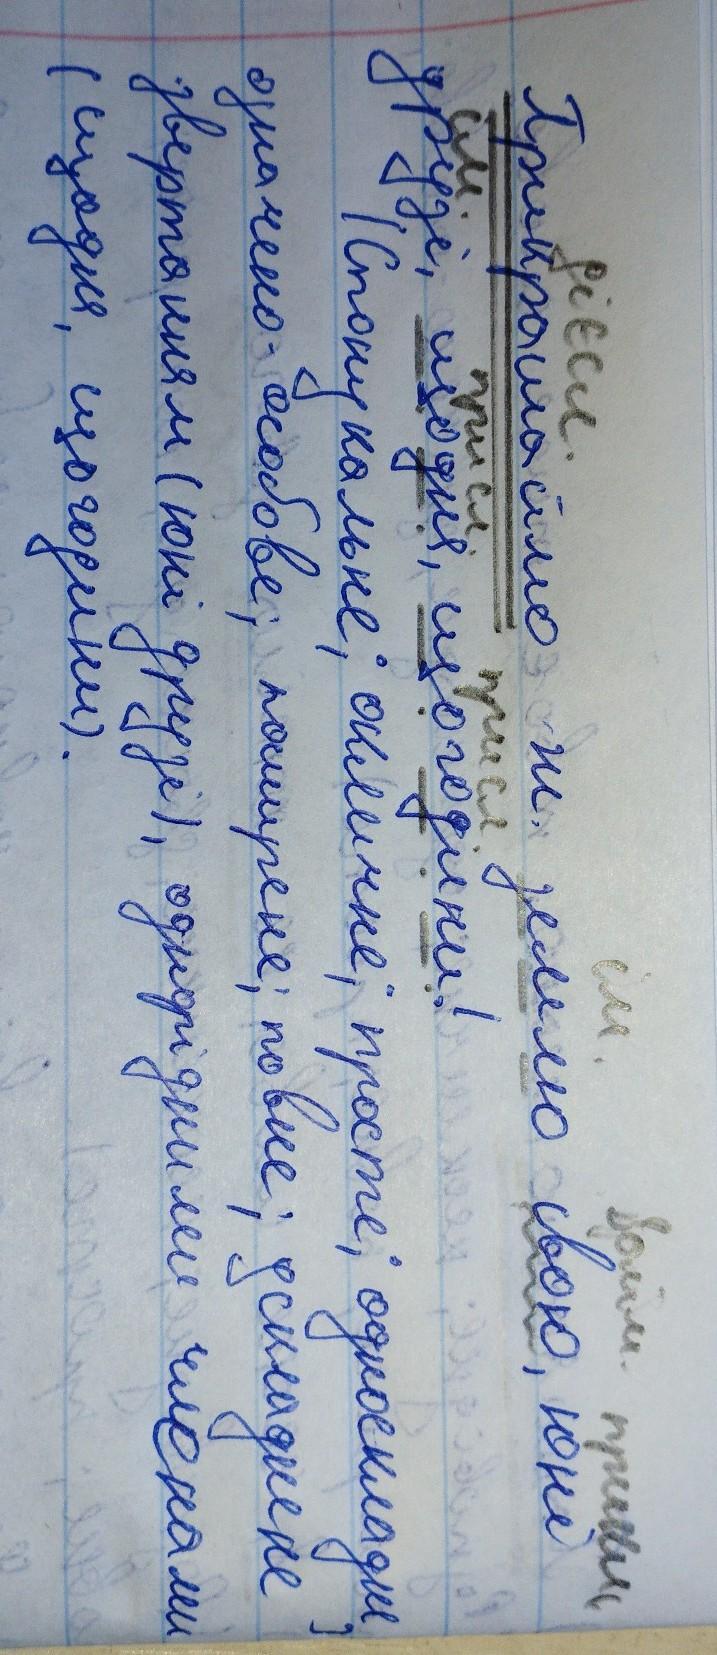 дієсл. ім. займ. прикм.
Прикрашаймо ж землю свою, юні
ім. присл. присл.
друзі, щодня, щогодини!
(Спонукальне; окличне; просте; односкладне;
означено-особове; поширене; повне; ускладнене
звертанням (юні друзі), однорідними членами
(щодня, щогодини).